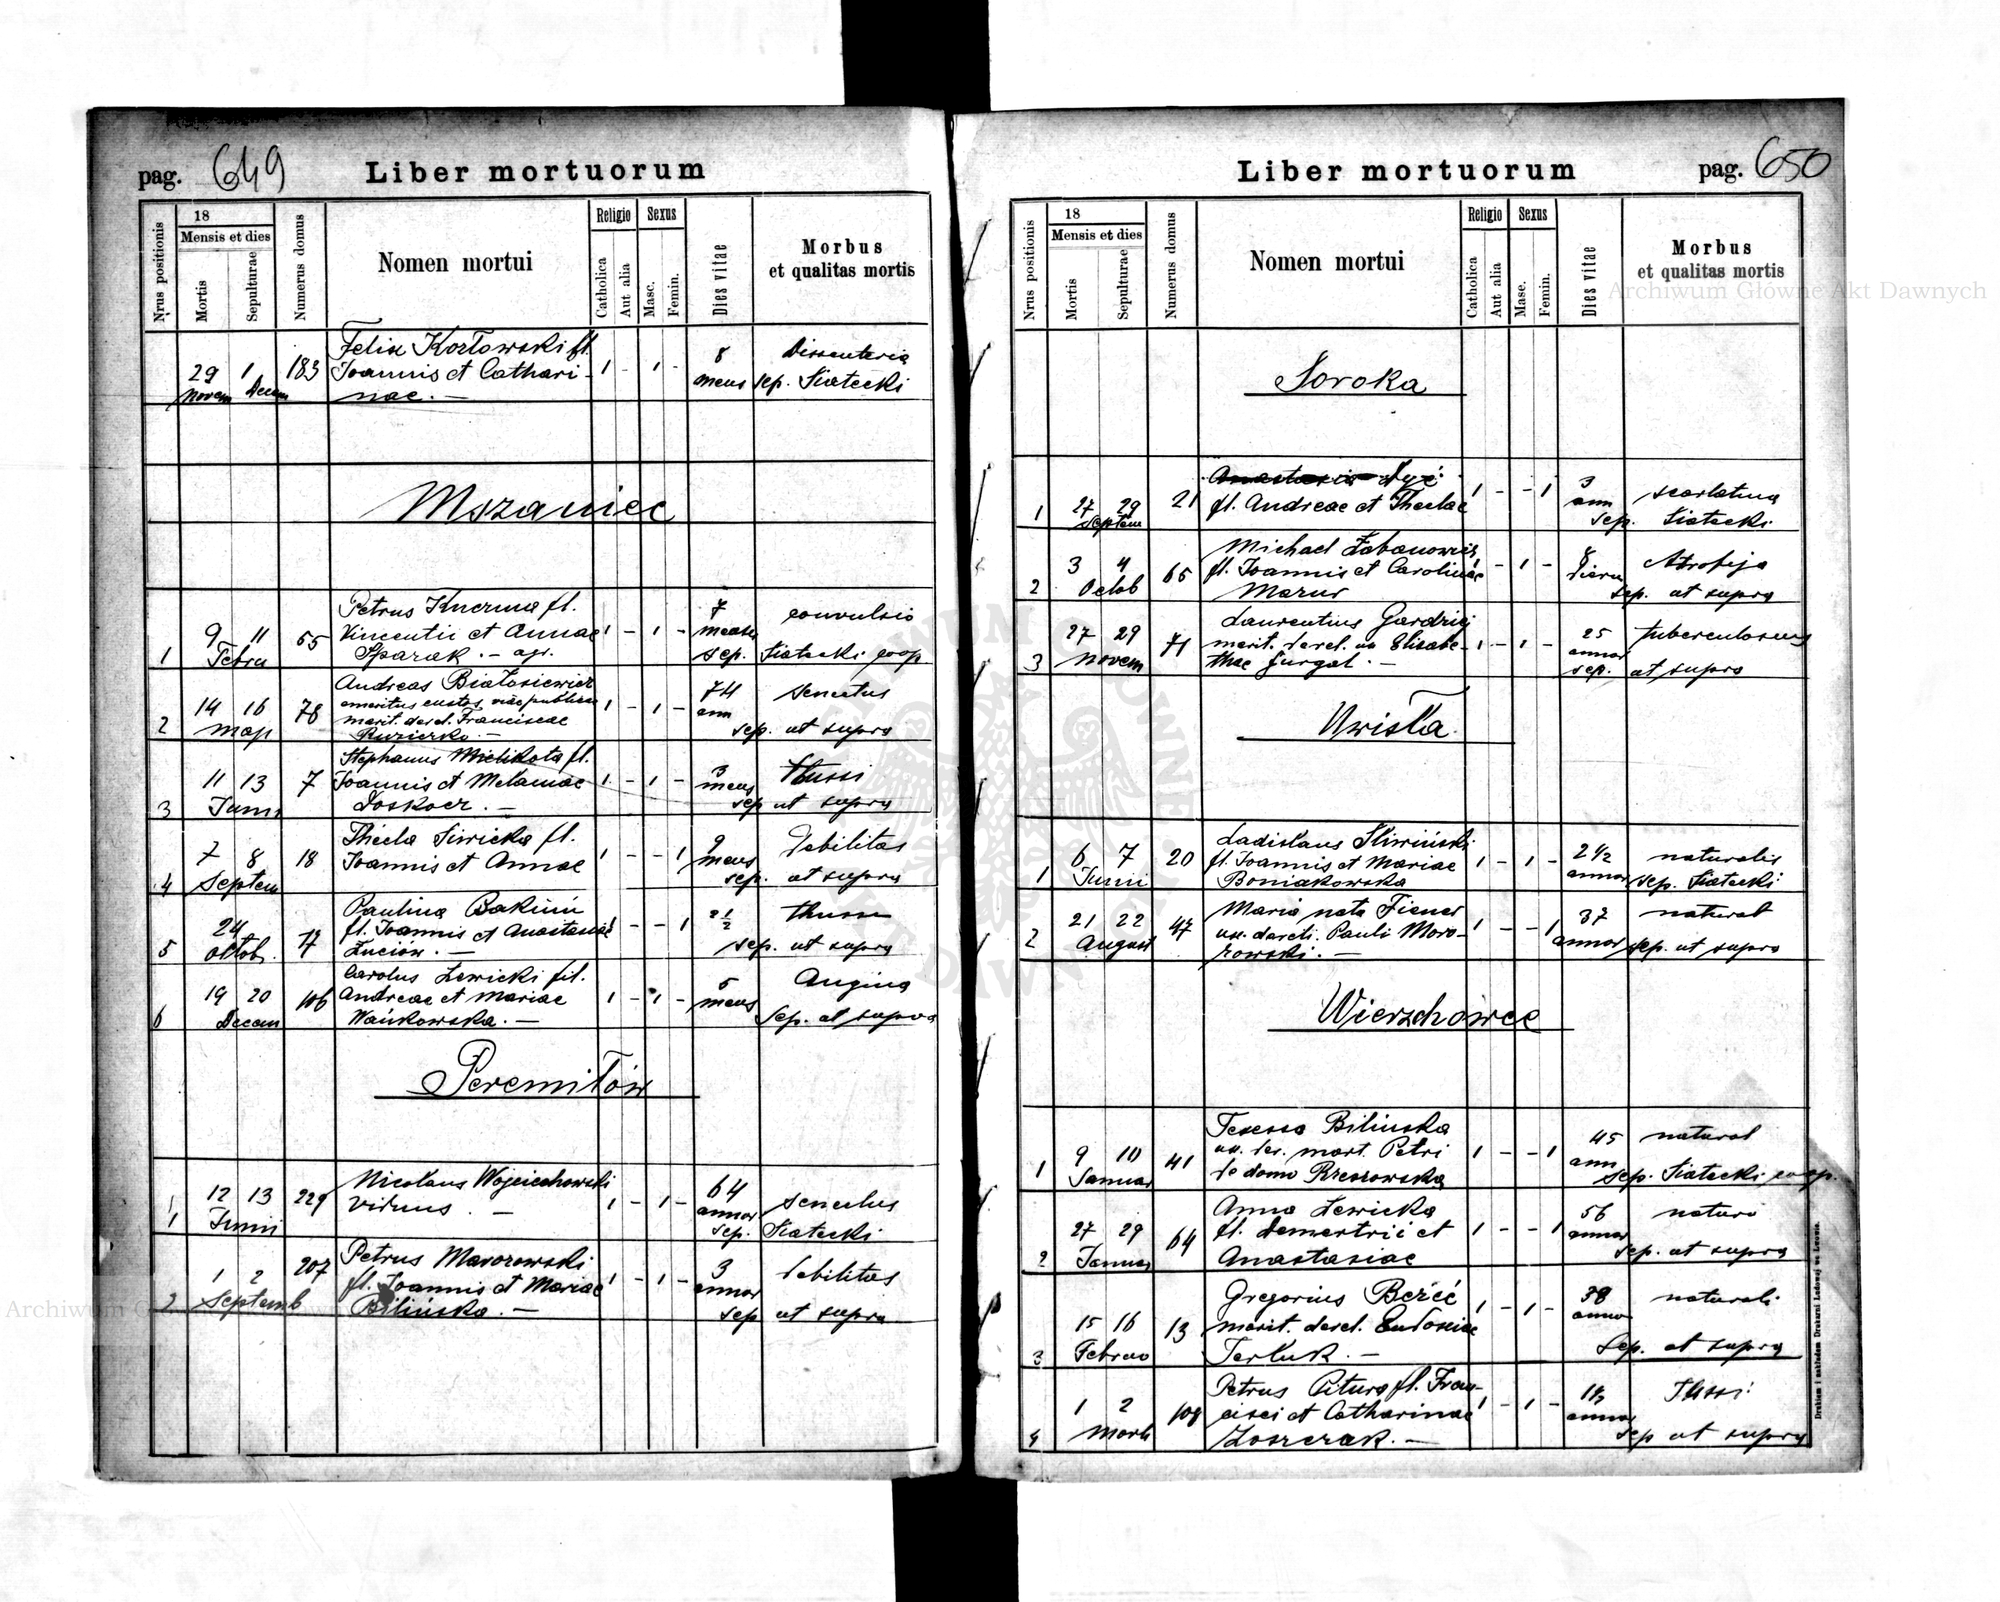 pag. 649
Liber mortuorum
Nrus positionis
18
Mensis et dies
Mortis
Sepulturae
Numerus domus
Nomen mortui
Religio
Catholica
Aut alia
Sexus
Masc.
Femin.
Dies vitae
Morbus
et qualitas mortis
Felix Kozłowski fl.
29 1 183 Joannis et Cathari- 1 - 1 - 8 Dissenteria
Novem Decem nae. — mens sep. Siatecki
Mszaniec
Petrus Kuczma fl.
1 9 11 55 Vincentii et Annae 1 - 1 - 7 convulsio
Febru Sparak. — agr. sep. Siatecki coop
Andreas Białosiewicz
emeritus custos viae publicae
2 14 16 78 marit. derel. Franciscae 1 - 1 - 74 senectus
Maji Ruziczko — ann sep. ut supra
Stephanus Mielikota fl.
3 11 13 7 Joannis et Melaniae 1 - 1 - 3 Tussi
Junii Doskocz. — mens sep ut supra
Thecla Siwicka fl.
4 7 8 18 Joannis et Annae 1 - - 1 9 debilitas
Septem mens sep. ut supra
Paulina Bakun
5 24 17 fl. Joannis et Anastasiae 1 - - 1 2 1/2
oktob. Łuciów. — sep. ut supra
Carolus Lewicki fil.
6 19 20 106 Andreae et Mariae 1 - 1 - 5 Angina
Decem Wańkowska. — mens Sep. ut supra
Peremiłów
Nicolaus Wojciechowski
1 12 13 229 viduus. — 1 - 1 - 64 senectus
Junii annor. sep. Siatecki
Petrus Maronowski
2 1 2 207 fl. Joannis et Mariae 1 - 1 - 3 debilitas
Septemb Bilińska. — annor sep ut supra
Liber mortuorum
pag. 650
Nrus positionis
18
Mensis et dies
Mortis
Sepulturae
Numerus domus
Nomen mortui
Religio
Catholica
Aut alia
Sexus
Masc.
Femin.
Dies vitae
Morbus
et qualitas mortis
Soroka
Anastasia
1 27 29 21 fl. Andreae et Theclae 1 - - 1 3 scarlatina
Septem ann sep. Siatecki
Michael Łabanowicz
2 3 4 65 fl. Joannis et Carolinae 1 - 1 - 8 Atrofija
Octob Mazur dierum sep. ut supra
Laurentius
3 27 29 71 marit. derel. ux Elisabe- 1 - 1 - 25 tuberculosus
Novem thae Gurgal. — annor sep. ut supra
Uwisła
Ladislaus Śliwiński
1 6 7 20 fl. Joannis et Mariae 1 - 1 - 2 1/2 naturalis
Junii Boniakowska annor sep. Siatecki
Maria nata Fiener
2 21 22 47 ux. derel. Pauli Moro- 1 - - 1 37 natural
August zowski. — annor sep. ut supra
Wierzchowce
Teressa Bilinska
1 9 10 41 ux. der. mort. Petri 1 - - 1 45 natural
Januar de domo Rzeszowska ann sep. Siatecki coop.
Anna Lewicka
2 27 29 64 fl. Demertrii et 1 - - 1 56 natura
Januar Anastasiae annor sep. ut supra
Gregorius Bereć
3 15 16 13 marit. derel. Eudoxiae 1 - 1 - 38 naturali
Februa Terluk. — annor sep. ut supra
Petrus Pitura fl. Fran-
4 1 2 108 cisci et Catharinae 1 - 1 - 1 1/2 Tussi
Marti Zoszczak. — annor sep ut supra
Drukiem i nakładem Drukarni Ludowej we Lwowie.
Archiwum Główne Akt Dawnych